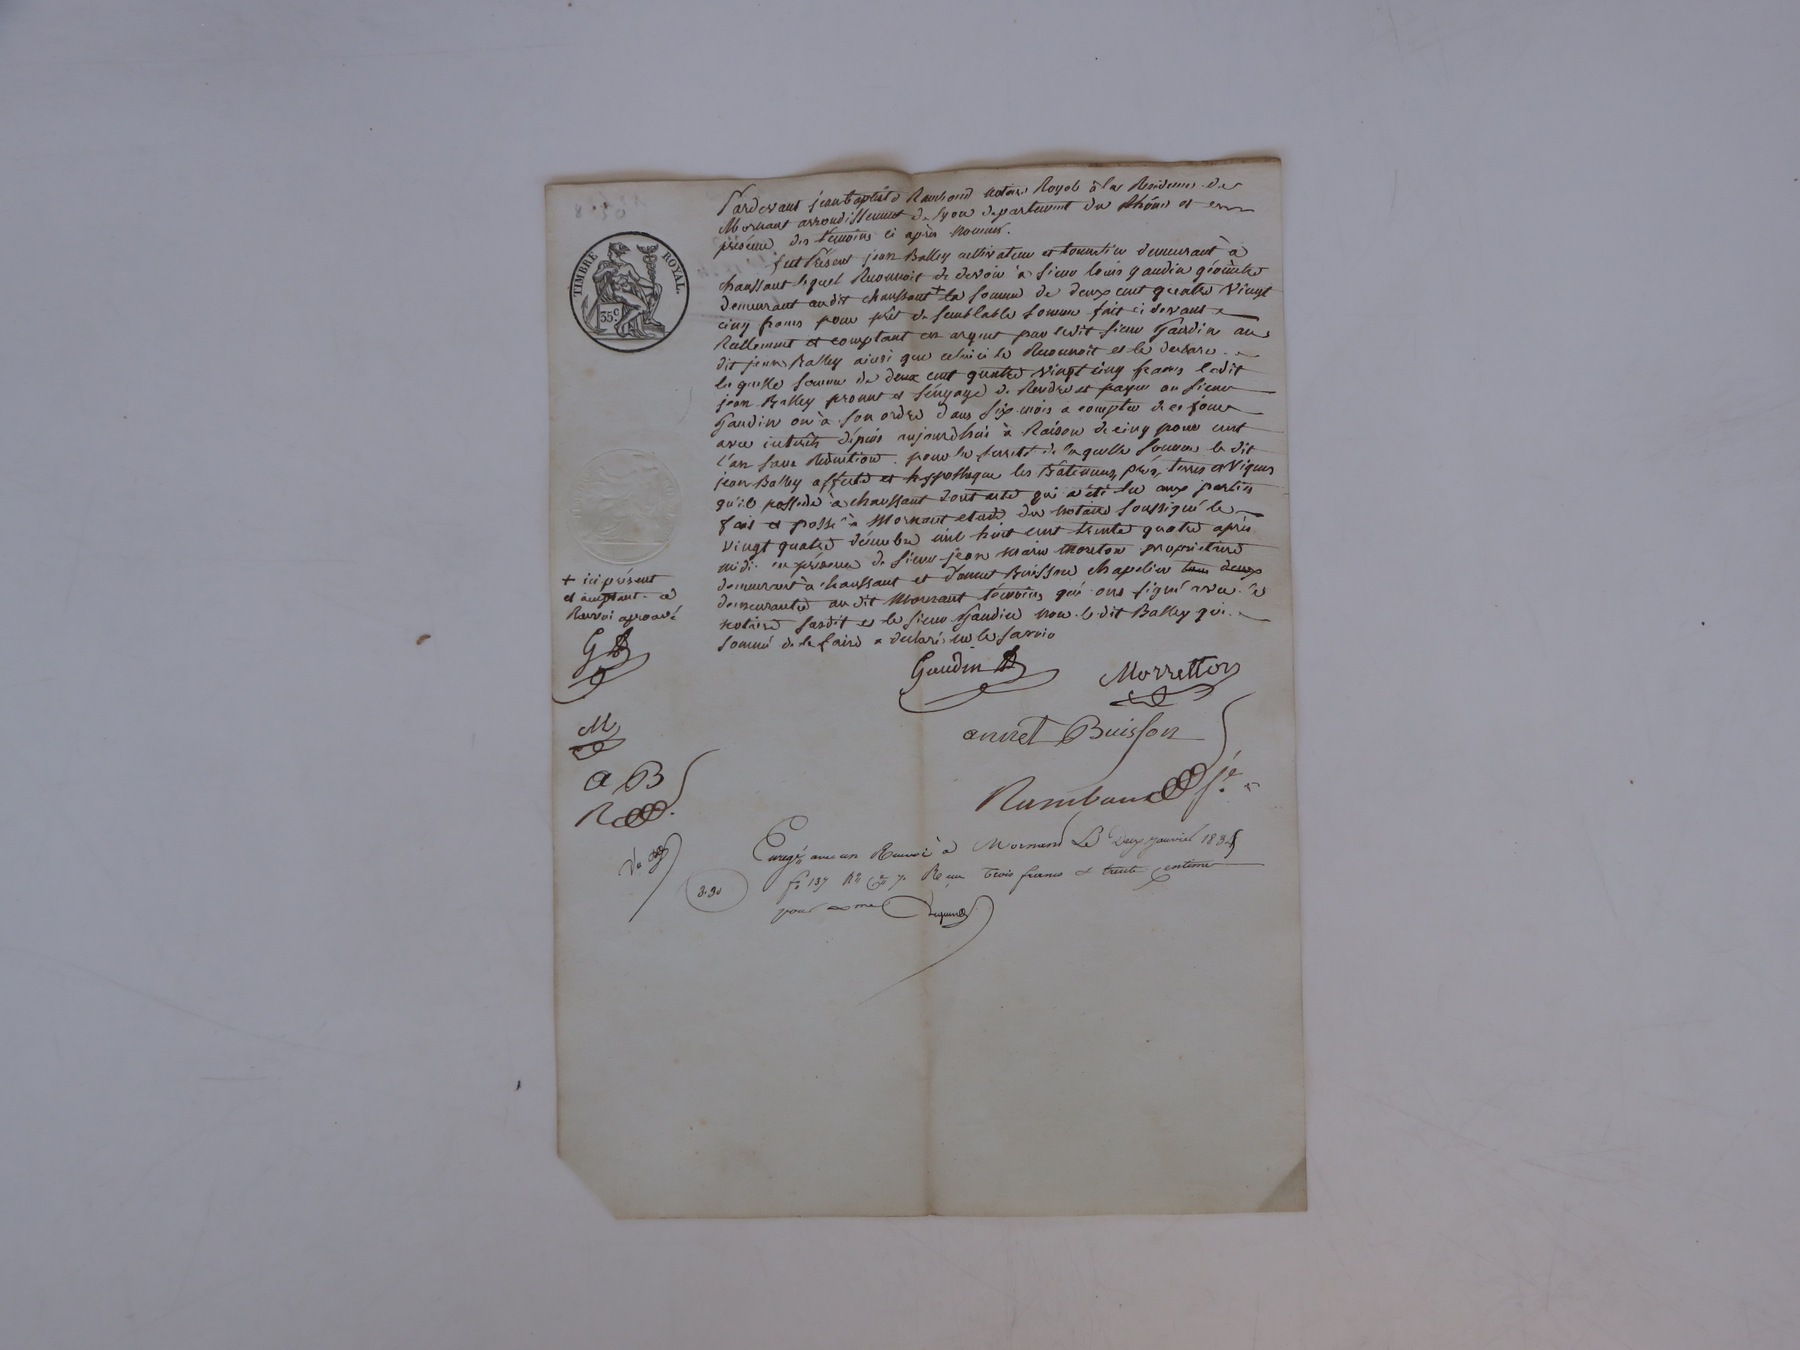 TIMBRE ROYAL.
35c
Pardevant jean baptiste Rambaud notaire Royal à la Residence de
Mornant arrondissement de Lyon departement du Rhône et en
présence des témoins ci après nommés.
fut Présent jean Balley cultivateur et tonnelier demeurant à
chaussant lequel Reconnoit de devoir à sieur louis gaudin géomètre
demeurant audit chaussant + la somme de deux cent quatre vingt
cinq francs pour prêt de semblable somme fait ci devant
Réellement et comptant en argent par ledit sieur Gaudin au
dit jean Balley ainsi que celui ci le Reconnoit et le declare
la quelle somme de deux cent quatre vingt cinq francs ledit
jean Balley promet et s'engage de Rendre et payer au sieur
Gaudin ou à son ordre dans six mois a compter de ce jour
avec interêts depuis aujourdhui à Raison de cinq pour cent
l'an sans Réduction. pour la sureté de laquelle somme le dit
jean Balley affecte et hypothèque les Bâtiments, prés, terres et vignes
qu'il possede à chaussant dont acte qui a été lu aux parties
fait et passé à Mornant etude du notaire soussigné le
vingt quatre décembre mil huit cent trente quatre après
midi en présence de sieur jean marie Moreton propriétaire
demeurant à chaussant et d'annet Buisson chapelier tous deux
demeurant au dit Mornant témoins qui ont signé avec le
notaire susdit et le sieur Gaudin non le dit Balley qui
sommé de le faire a declaré ne le savoir
+ ici présent
et acceptant
Renvoi aprouvé
G
M
a B
R
Gaudin
Morretton
annet Buisson
Rambaud
Enregé avec un Renvoi à Mornant Le Deux janvier 1835
fo 137 Ro Reçu trois francs et trente centimes
3.30
pour